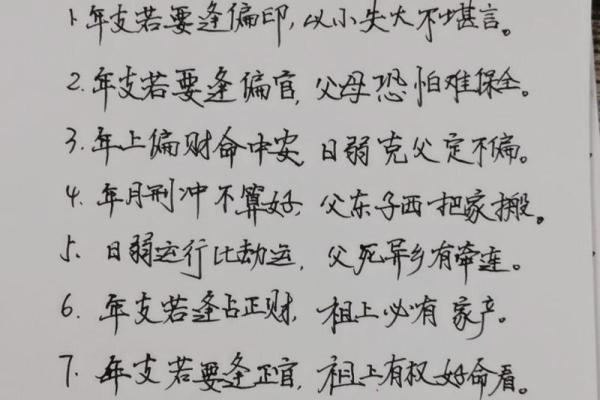 1、年支若要逢偏印,以小失大不堪言。
2.年支若要逢偏官,父母恐怕难保全。
3.年上偏财命中安,日弱克父定不偏。
4、年月刑冲不算好,父东子西把家搬。
5、日弱运行比劫运,父死异乡有牵连。
6、年支若逢占正财,祖上必有家产。
7、年支若要逢正官,祖上有权好命看。